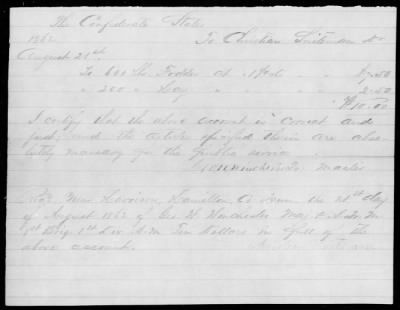 The Confederate States
1862 To Christian
August 21st.
To 600 lbs. Fodder at $7.50
" 200 " Hay " " 2.50
$10.00
I certify that the above account is correct and
just; and the articles specified therein are abso-
lutely necessary for the public service.
Master
Recd. Near Harrison, Hamilton Co Tenn the 21st day
of August 1862 of Geo. W. Winchester Maj. &
1st Brig. 1st Div. Ten Dollars in full of the
above account.